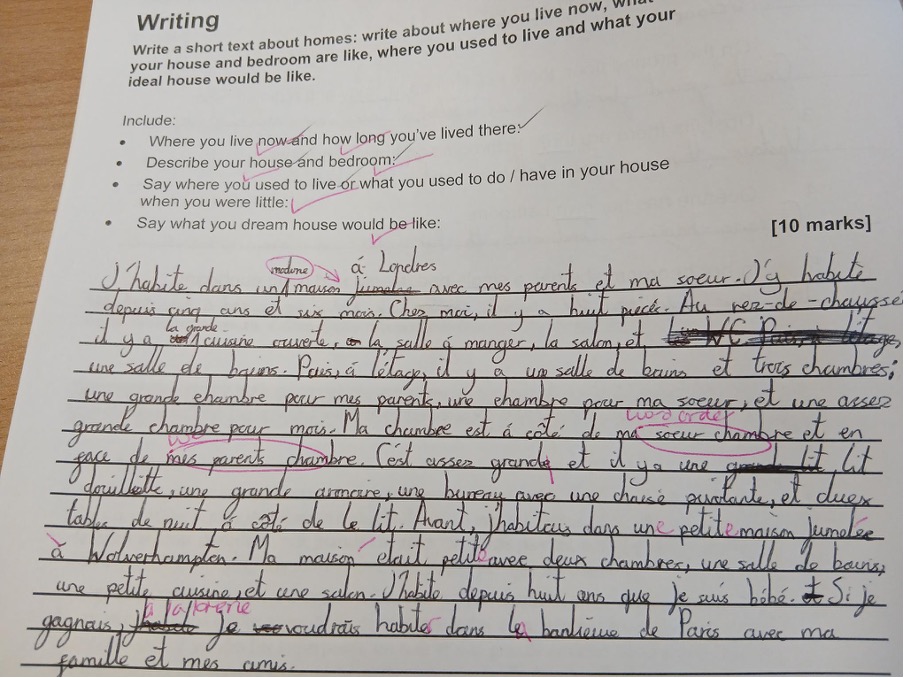 Writing
Write a short text about homes: write about where you live now, what
your house and bedroom are like, where you used to live and what your
ideal house would be like.
Include:
• Where you live now and how long you've lived there:
• Describe your house and bedroom:
• Say where you used to live or what you used to do / have in your house
when you were little:
• Say what you dream house would be like:
[10 marks]
moderne á Londres
J'habite dans un maison jumelée avec mes parents et ma soeur. J'y habite
depuis cinq ans et six mois. Chez moi, il y a huit pièce. Au rez-de-chaussé
la grande
il y a cuisine ouverte, la salle á manger, la salon, et WC Puis, á l'étage,
une salle de bains. Puis, á l'étage, il y a un salle de bains et trois chambres;
une grande chambre pour mes parents, une chambre pour ma soeur, et une assez
word order
grande chambre pour mois. Ma chambre est á côté de ma soeur chambre et en
wo
face de mes parents chambre. C'est assez grande et il y a une grande lit, lit
douillette, une grande armoire, une bureau avec une chaise pivotante, et duex
tables de nuit á côté de le lit. Avant, j'habitais dans une petite maison jumelée
à Wolverhampton. Ma maison était petite avec deux chambres, une salle de bains,
une petite cuisine, et une salon. J'habite depuis huit ans que je suis bébé. et Si je
à la loterie
gagnais, j'habite je voudrais habiter dans la banlieue de Paris avec ma
famille et mes amis.